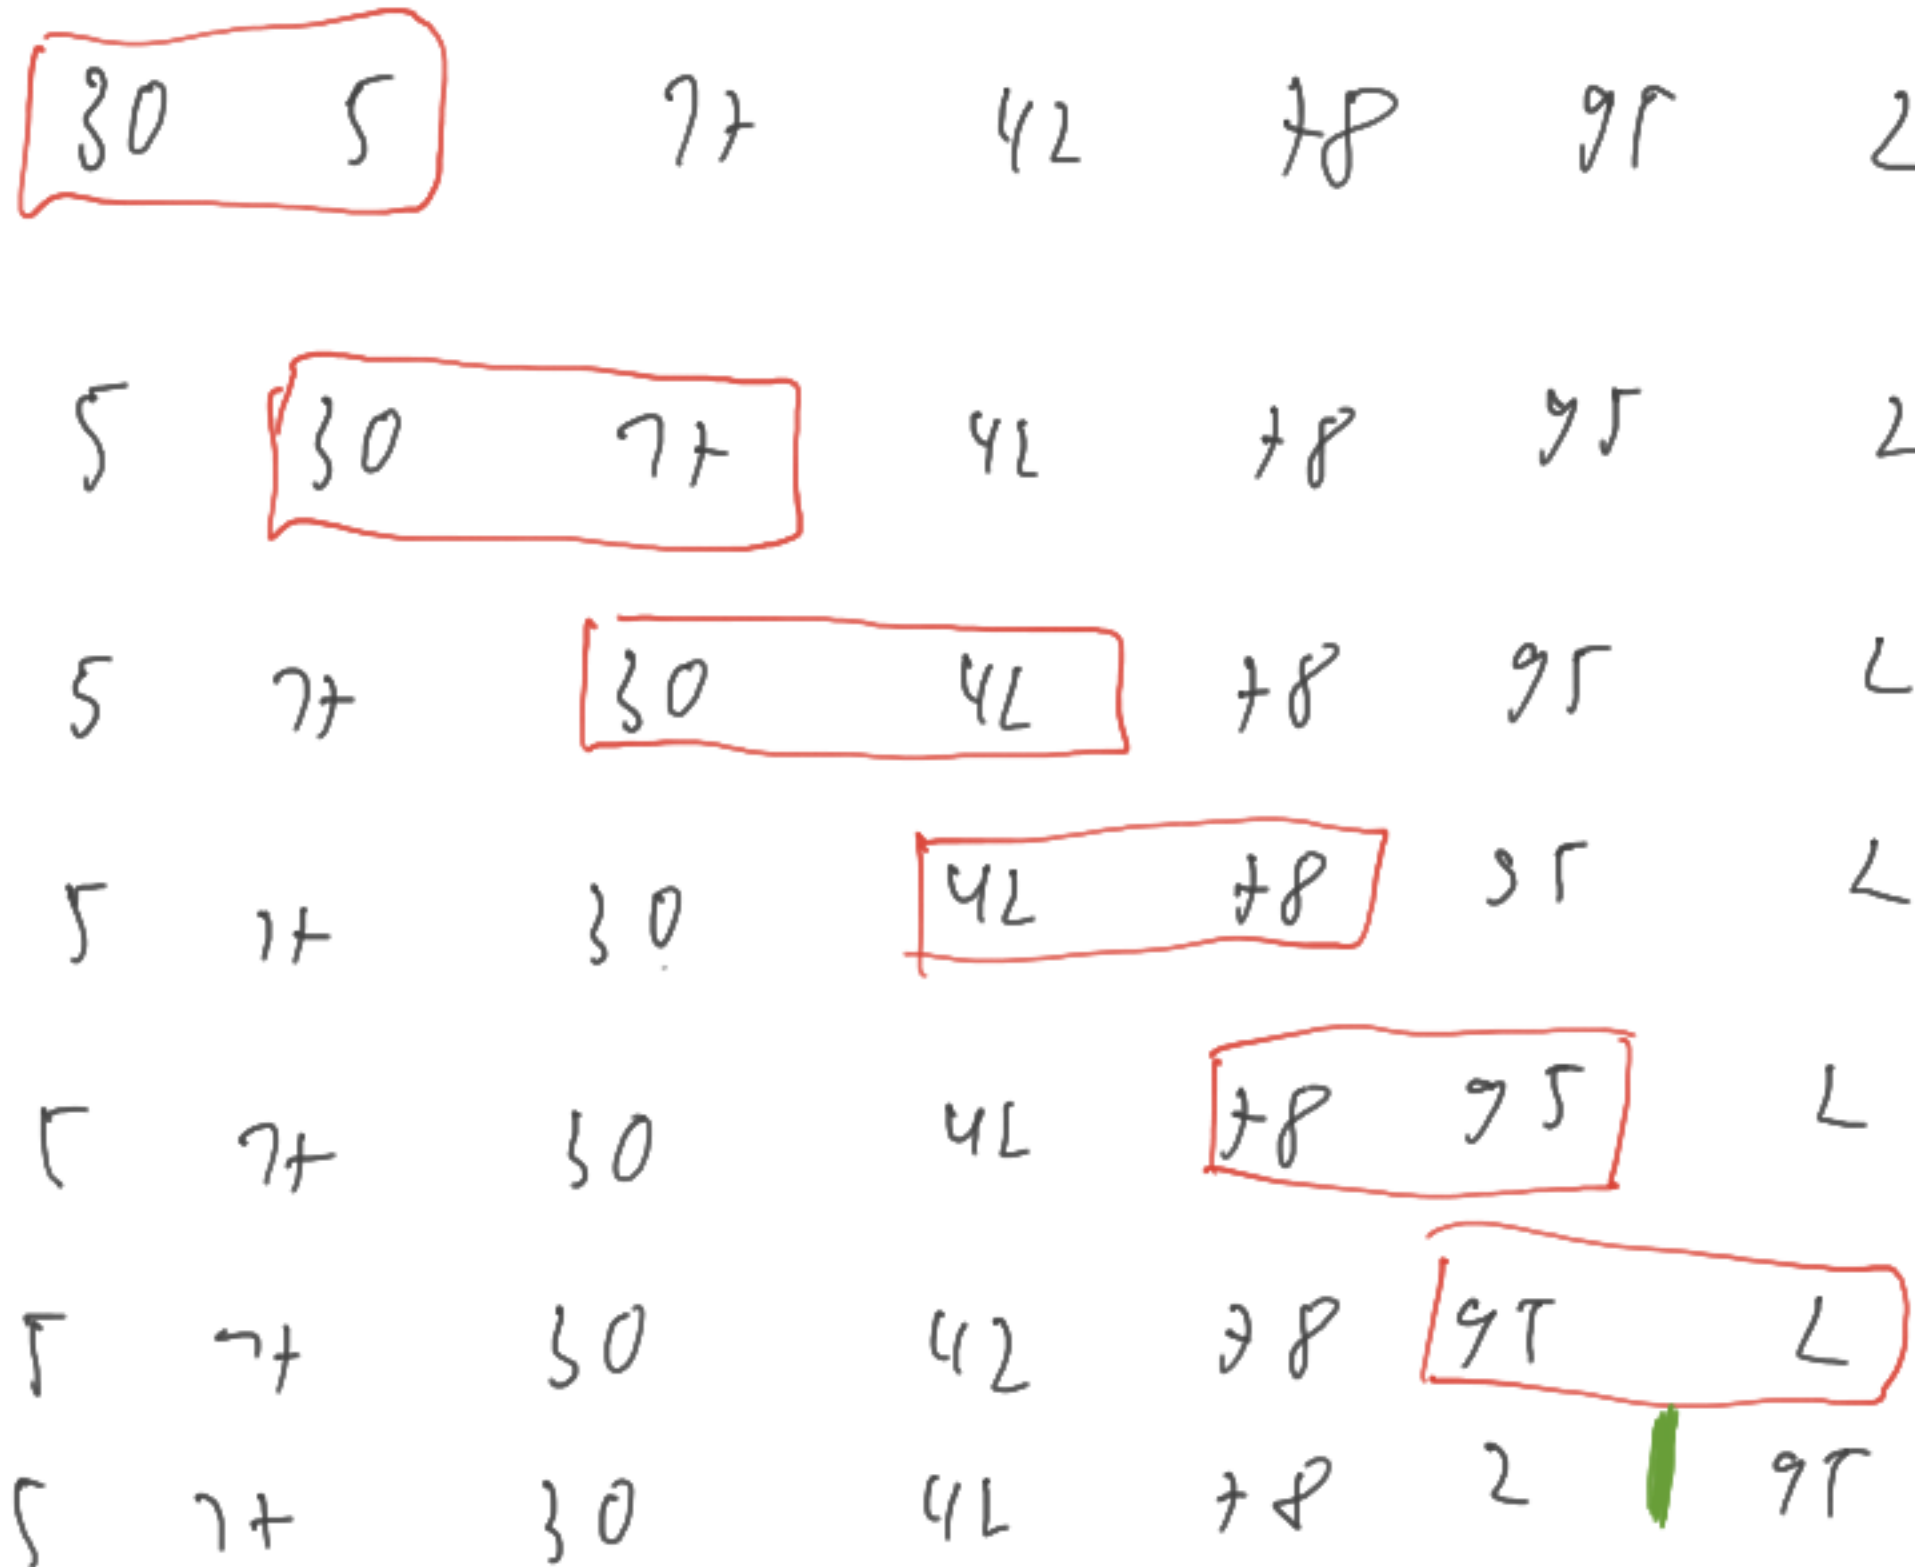 30 5 17 42 78 95 2
5 30 17 42 78 95 2
5 17 30 42 78 95 2
5 17 30 42 78 95 2
5 17 30 42 78 95 2
5 17 30 42 78 95 2
5 17 30 42 78 2 95